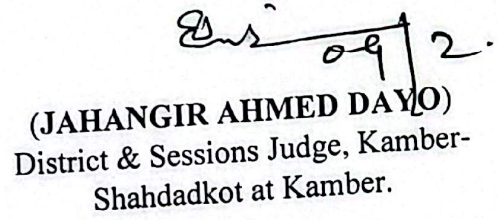 09/2.
(JAHANGIR AHMED DAYO)
District & Sessions Judge, Kamber-
Shahdadkot at Kamber.